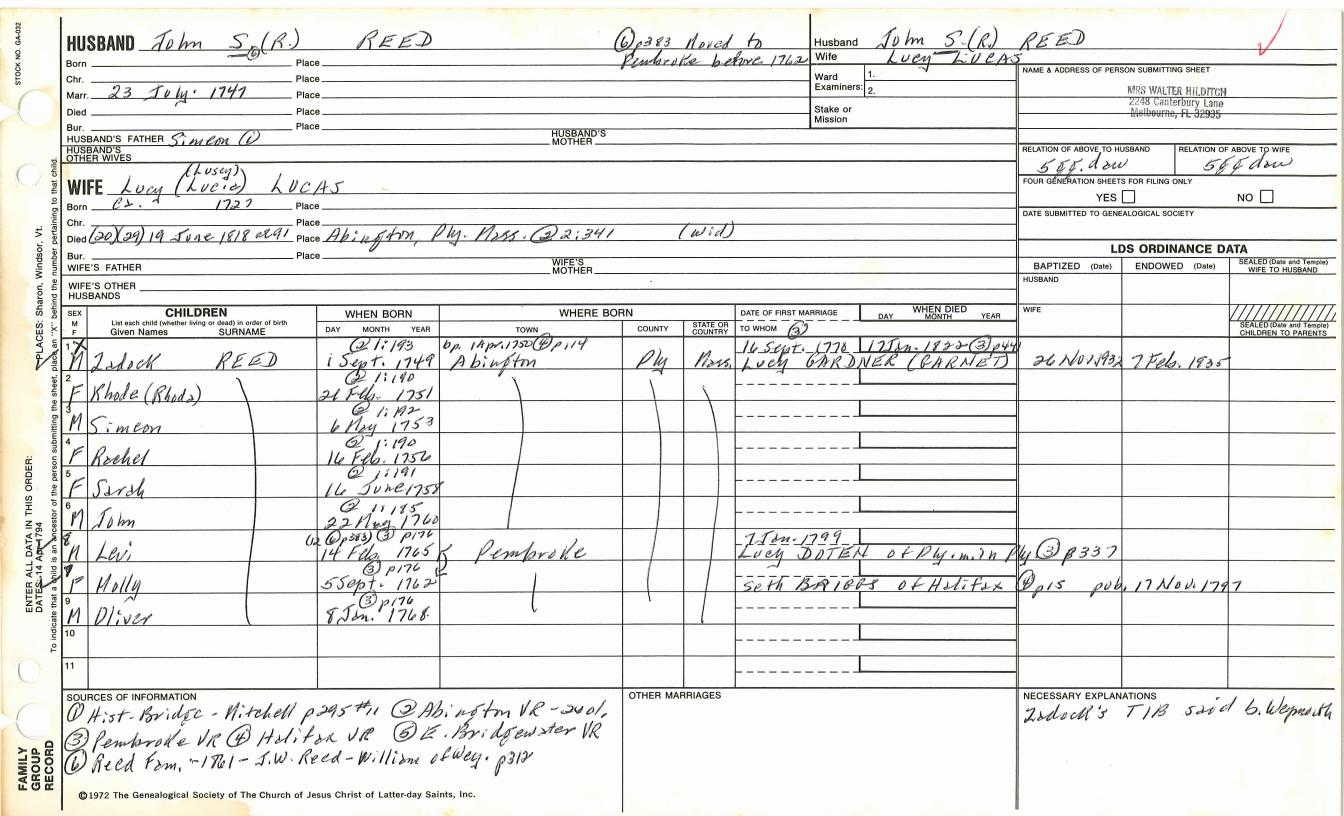 STOCK NO. GA-032
HUSBAND John S. (R.) REED
⑥
⑥ p383 Moved to
Pembroke before 1762
Husband John S. (R.) REED
Wife Lucy LUCAS
Born Place
Chr. Place
Marr. 23 July. 1747 Place
Died Place
Bur. Place
Ward 1.
Examiners: 2.
Stake or
Mission
NAME & ADDRESS OF PERSON SUBMITTING SHEET
MRS WALTER HILDITCH
2248 Canterbury Lane
Melbourne, FL 32935
HUSBAND'S FATHER Simeon ① HUSBAND'S MOTHER
HUSBAND'S OTHER WIVES
RELATION OF ABOVE TO HUSBAND RELATION OF ABOVE TO WIFE
5gg. dau 5gg dau
(Lusey)
WIFE Lucy (Lucia) LUCAS
Born ca. 1727 Place
Chr. Place
Died (20)(29) 19 June 1818 ae 91 Place Abington, Ply. Mass. ② 2:341 (wid)
Bur. Place
WIFE'S FATHER WIFE'S MOTHER
WIFE'S OTHER HUSBANDS
FOUR GENERATION SHEETS FOR FILING ONLY
YES NO
DATE SUBMITTED TO GENEALOGICAL SOCIETY
LDS ORDINANCE DATA
BAPTIZED (Date) ENDOWED (Date) SEALED (Date and Temple) WIFE TO HUSBAND
HUSBAND
WIFE
SEALED (Date and Temple) CHILDREN TO PARENTS
SEX M F CHILDREN WHEN BORN WHERE BORN DATE OF FIRST MARRIAGE WHEN DIED
List each child (whether living or dead) in order of birth
Given Names SURNAME DAY MONTH YEAR TOWN COUNTY STATE OR COUNTRY TO WHOM ③ DAY MONTH YEAR
1 X ② 1:193 bp. 1 Apr. 1750 ④ p114 16 Sept. 1770 17 Jan. 1822 ③ p441
M Zadock REED 1 Sept. 1749 Abington Ply Mass. Lucy GARDNER (GARNET) 26 Nov. 1932 7 Feb. 1935
2 ② 1:190
F Rhode (Rhoda) 26 Feb. 1751
3 ② 1:192
M Simeon 6 May 1753
4 ② 1:190
F Rachel 16 Feb. 1756
5 ② 1:191
F Sarah 16 June 1758
6 ② 1:185
M John 22 May 1760
8 (12 ⑥ p383) ③ p176 7 Jan. 1799
M Levi 14 Feb. 1765 Pembroke Lucy DOTEN of Ply. m. in Ply ③ p337
7 ③ p176
F Molly 5 Sept. 1762 Seth BRIGGS of Halifax ④ p15 pub. 17 Nov. 1797
9 ③ p176
M Oliver 8 Jan. 1768
10
11
SOURCES OF INFORMATION
① Hist-Bridge - Mitchell p295 #11 ② Abington VR - 2 vol.
③ Pembroke VR ④ Halifax VR ⑤ E. Bridgewater VR
⑥ Reed Fam. - 1861 - J.W. Reed - William of Wey. p312
OTHER MARRIAGES
NECESSARY EXPLANATIONS
Zadock's TIB said b. Weymouth
©1972 The Genealogical Society of The Church of Jesus Christ of Latter-day Saints, Inc.
FAMILY
GROUP
RECORD
ENTER ALL DATA IN THIS ORDER:
DATES: 14 Apr 1794
PLACES: Sharon, Windsor, Vt.
To indicate that a child is an ancestor of the person submitting the sheet, place an "X" behind the number pertaining to that child.